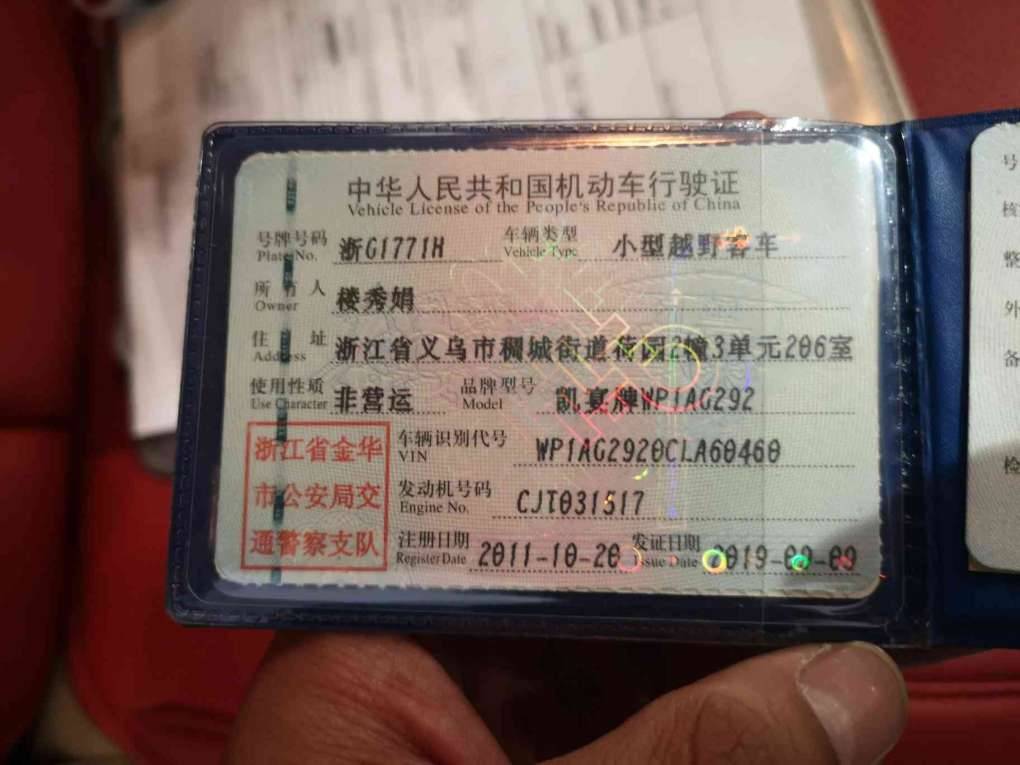 中华人民共和国机动车行驶证
Vehicle License of the People's Republic of China
号牌号码 浙G1771H 车辆类型 小型越野客车
Plate No. Vehicle Type
所有人 楼秀娟
Owner
住址 浙江省义乌市稠城街道荷园2幢3单元206室
Address
使用性质 非营运 品牌型号 凯宴牌WP1AG292
Use Character Model
浙江省金华
市公安局交
通警察支队
车辆识别代号 WP1AG2920CLA60460
VIN
发动机号码 CJT031517
Engine No.
注册日期 2011-10-20 发证日期
Register Date Issue Date
号
核
整
外
备
检